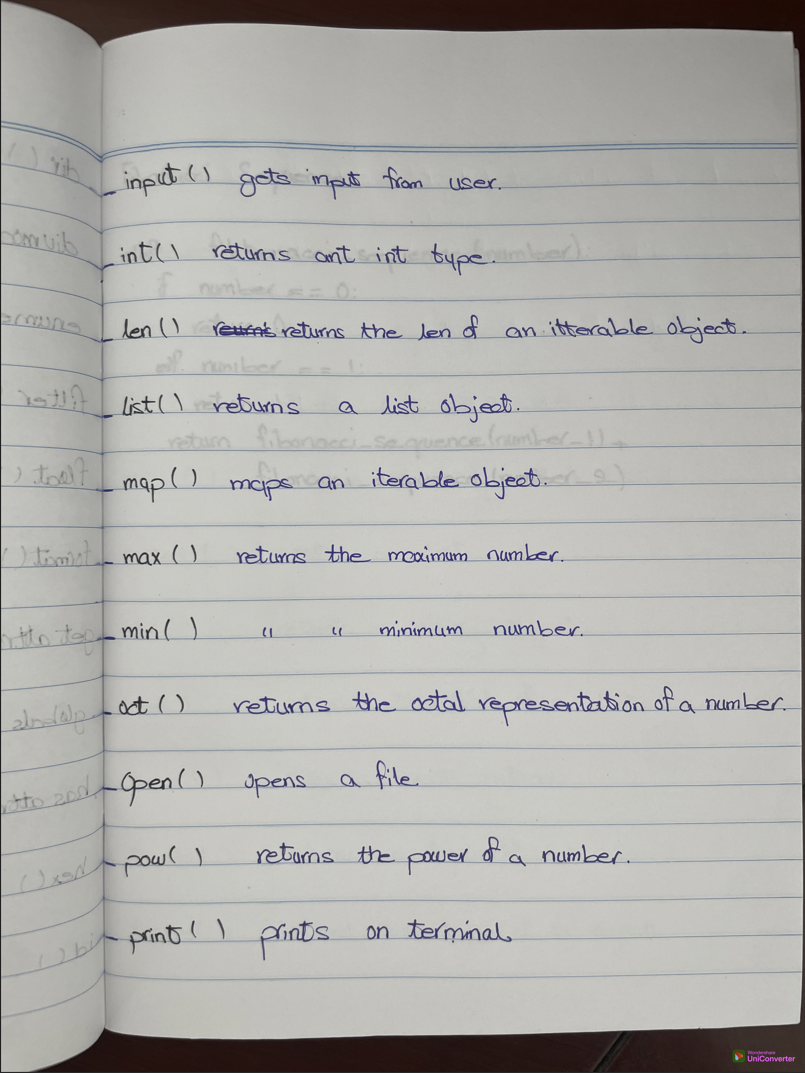 - input() gets input from user.
- int() returns ant int type.
- len() returns the len of an itterable object.
- list() returns a list object.
- map() maps an iterable object.
- max() returns the maximum number.
- min() " " minimum number.
- oct() returns the octal representation of a number.
- Open() opens a file
- pow() returns the power of a number.
- print() prints on terminal.
number):
if number == 0:
elif number == 1:
return fibonacci_sequence(number_1) +
Wondershare
UniConverter